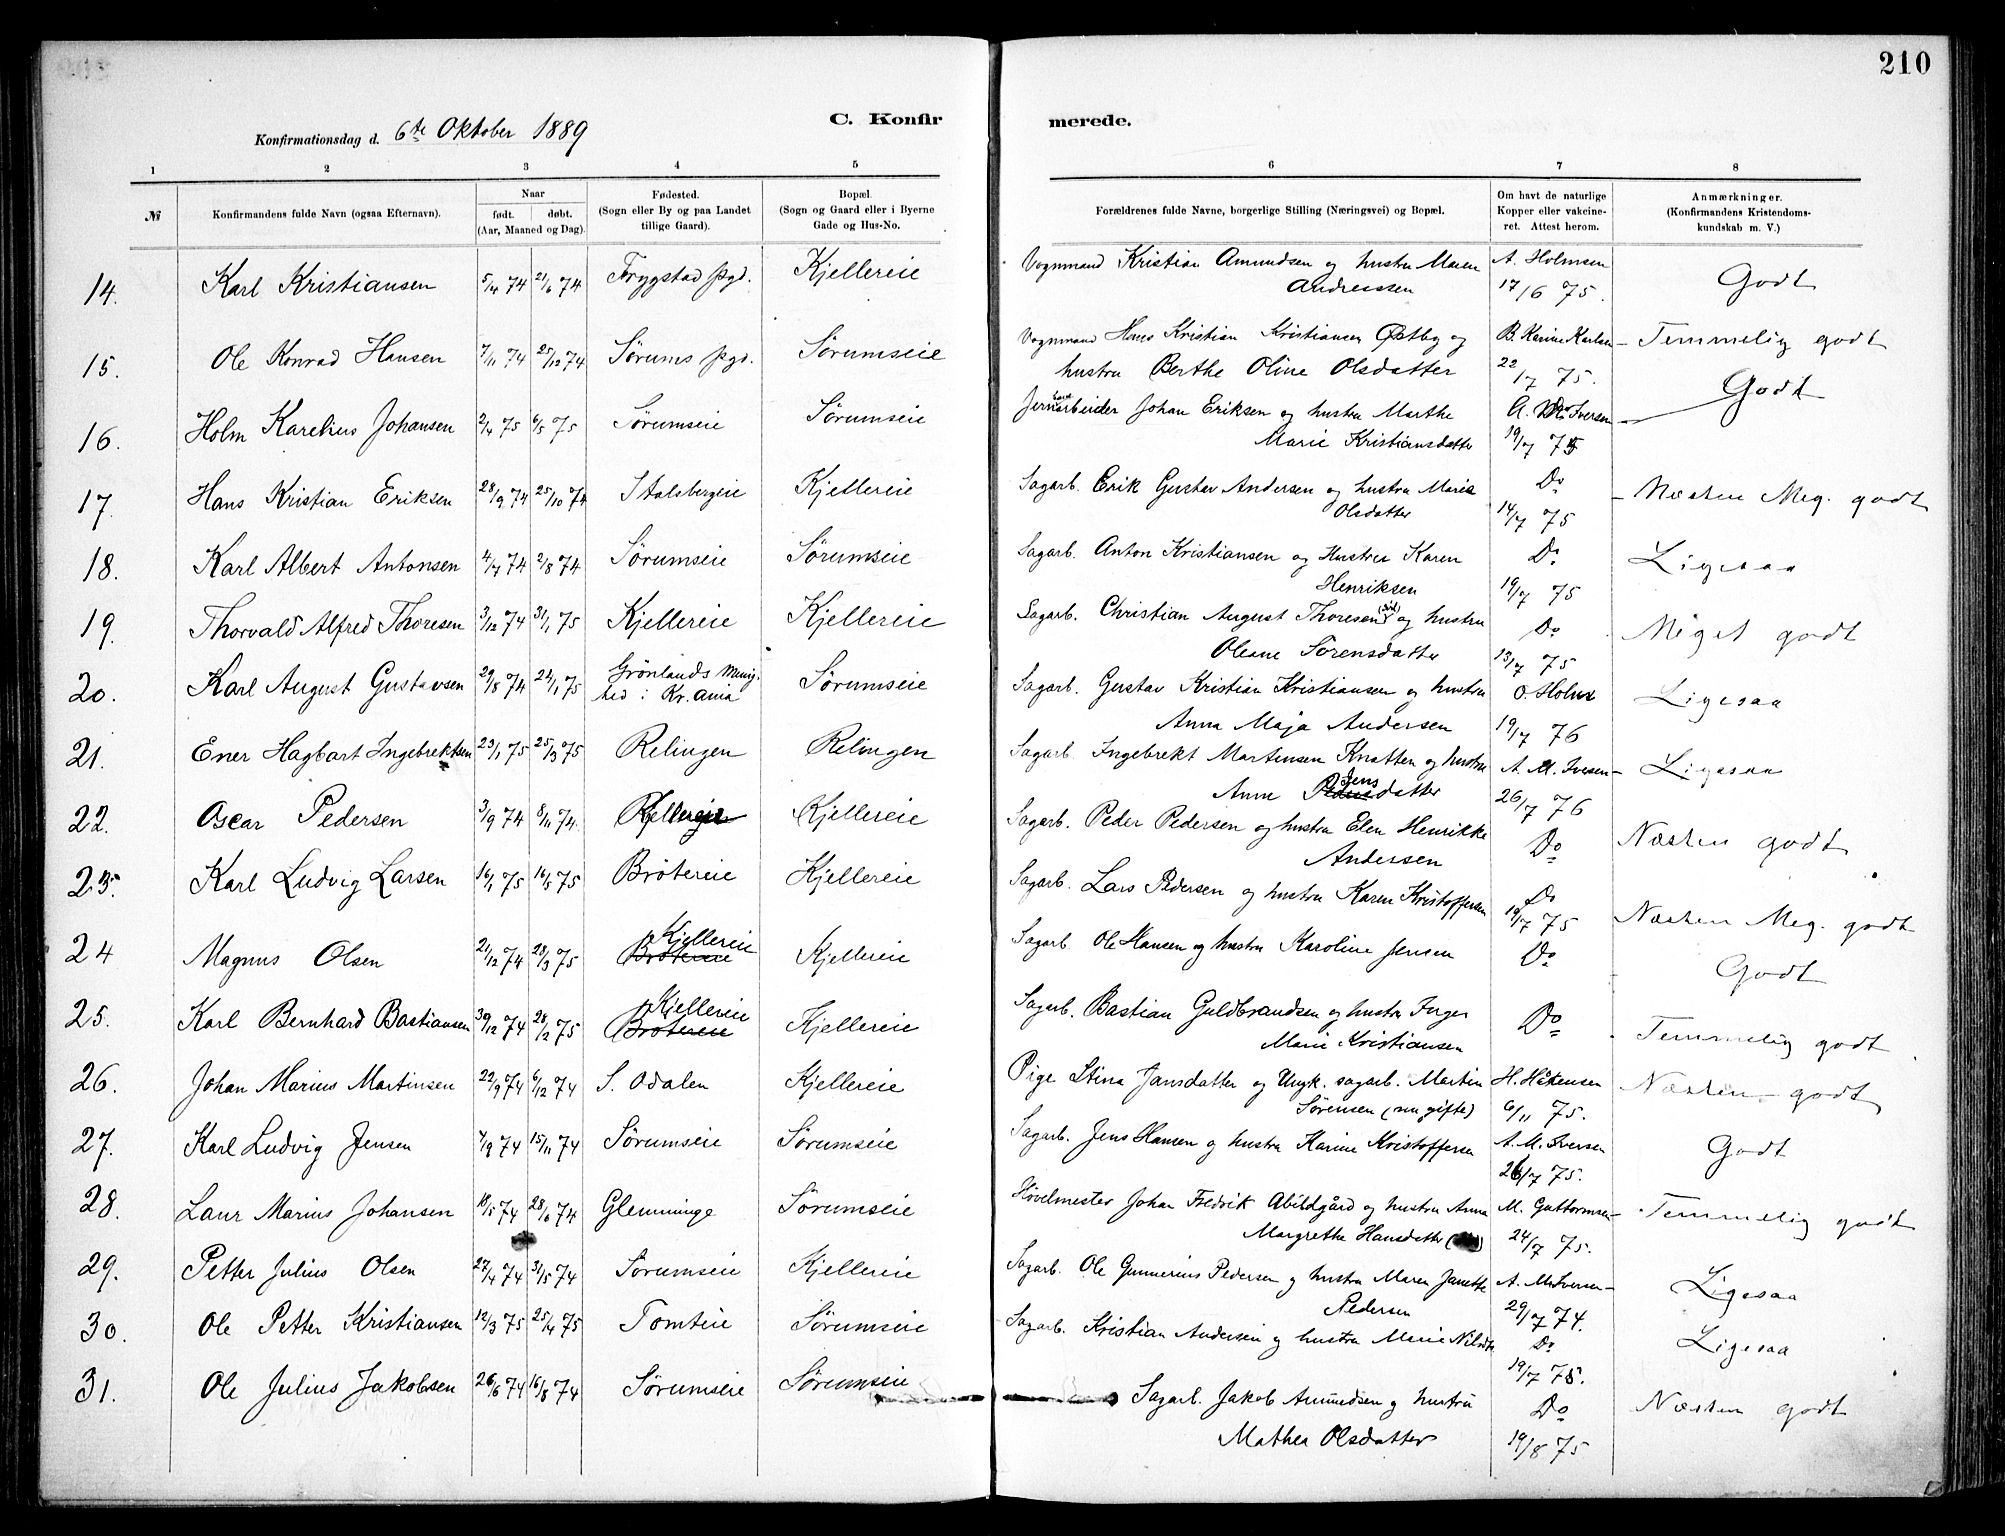 210
Konfirmationsdag d. 6te Oktober 1889
C. Konfir merede.
1 2 3 4 5 6 7 8
№
Konfirmandens fulde Navn (ogsaa Efternavn).
Naar
født. døbt.
(Aar, Maaned og Dag).
Fødested.
(Sogn eller By og paa Landet
tillige Gaard).
Bopæl.
(Sogn og Gaard eller i Byerne
Gade og Hus-No.
Forældrenes fulde Navne, borgerlige Stilling (Næringsvei) og Bopæl.
Om havt de naturlige
Kopper eller vakcine-
ret. Attest herom.
Anmærkninger.
(Konfirmandens Kristendoms-
kundskab m. V.)
14. Karl Kristiansen 5/4 74 21/6 74 Trygstad pgd. Kjellereie Vognmand Kristian Amundsen og hustru Maren A. Holmsen Godt
Andreassen 17/6 75.
15. Ole Konrad Hansen 7/11 74 25/12 74 Sørums pgd. Sørumseie Vognmand Hans Kristian Kristiansen Østby og B. Karine Karlsen Temmelig godt
hustru Berthe Oline Olsdatter 22/7 75.
16. Holm Karelius Johansen 2/4 75 6/5 75 Sørumseie Sørumseie Jernarbeider Johan Eriksen og hustru Marthe A. M. Iversen Godt
Marie Kristiansdatter 19/7 75
17. Hans Kristian Eriksen 28/9 74 25/10 74 Stalsbergeie Kjellereie Sagarb. Erik Gustav Andersen og hustru Marie Do Næsten Meg. godt
Olsdatter 14/7 75
18. Karl Albert Antonsen 4/7 74 2/8 74 Sørumseie Sørumseie Sagarb. Anton Kristiansen og Hustru Karen Do Ligesaa
Henriksen 19/7 75
19. Thorvald Alfred Thoresen 3/12 74 31/1 75 Kjellereie Kjellereie Sagarb. Christian August Thoresen og hustru Do Meget godt
Oleane Sørensdatter 13/7 75
20. Karl August Gustavsen 29/8 74 24/1 75 Grönlands Menig- Sørumseie Sagarb. Gustav Kristian Kristiansen og hustru O. Holm Ligesaa
hed i Kr.ania Anna Maja Andersen 19/7 76
21. Ener Hagbart Ingebrektsen 23/1 75 25/3 75 Relingen Relingen Sagarb. Ingebrekt Martinsen Knatten og hustru A. M. Iversen Ligesaa
Anne Jensdatter 26/7 76
22. Oscar Pedersen 3/9 74 8/11 74. Kjellereie Kjellereie Sagarb. Peder Pedersen og hustru Elen Henrikke Do Næsten godt
Andersen
23. Karl Ludvig Larsen 16/1 75 16/5 75 Bröterie Kjellereie Sagarb. Lars Pedersen og hustru Karen Kristoffersen Do Næsten Meg. godt
19/7 75
24 Magnus Olsen 21/12 74 28/3 75 Kjellereie Kjellereie Sagarb Ole Hansen og hustru Karoline Jensen Do Godt
Bröterie
25. Karl Bernhard Bastiansen 30/12 74 28/2 75 Kjellereie Kjellereie Sagarb. Bastian Guldbrandsen og hustru Inger Do Temmelig godt
Bröterie Marie Kristiansen
26. Johan Marius Martinsen 22/9 74 6/12 74 S. Odalen Kjellereie Pige Stina Jansdatter og Ungk. sagarb. Martin H. Håkensen Næsten godt
Sørensen (nu gifte) 6/11 75.
27. Karl Ludvig Jensen 7/9 74 15/11 74 Sørumseie Sørumseie Sagarb. Jens Hansen og hustru Karine Kristoffersen A. M. Iversen Godt
26/7 75.
28. Laur Marius Johansen 18/5 74 28/6 74 Glemminge Sørumseie Høvelmester Johan Fredrik Abildgård og hustru Anna M. Guttormsen Temmelig godt
Margrethe Hansdatter 24/7 75.
29. Petter Julius Olsen 27/4 74 31/5 74 Sørumseie Kjellereie Sagarb. Ole Gunnerius Pedersen og hustru Maren Janette A. M. Iversen Ligesaa
Pedersen 29/7 74.
30. Ole Petter Kristiansen 12/3 75 25/4 75 Tomteie Sørumseie Sagarb. Kristian Andersen og hustru Marie Nilsdtr Do Ligesaa
19/7 75.
31. Ole Julius Jakobsen 26/6 74 16/8 74 Sørumseie Sørumseie Sagarb. Jakob Amundsen og hustru Do Næsten godt
Mathea Olsdatter 19/8 75